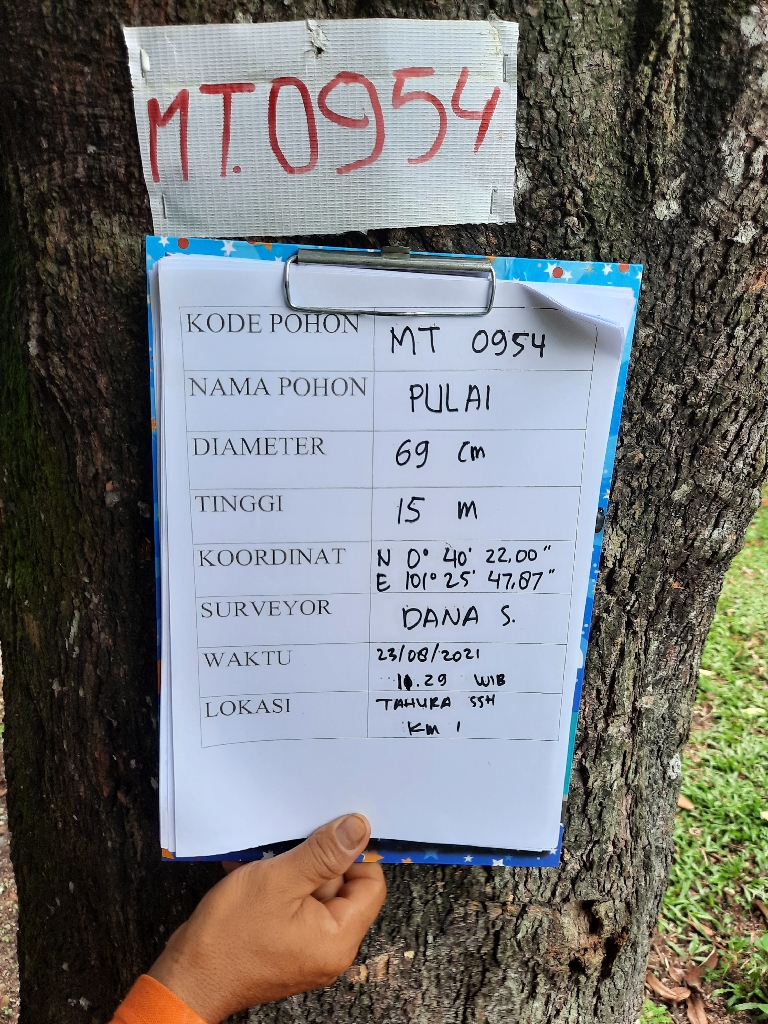 MT.0954
KODE POHON MT 0954
NAMA POHON PULAI
DIAMETER 69 cm
TINGGI 15 m
KOORDINAT N 0° 40' 22,00"
E 101° 25' 47,87"
SURVEYOR DANA S.
WAKTU 23/08/2021
11.29 WIB
LOKASI TAHURA SSH
Km 1